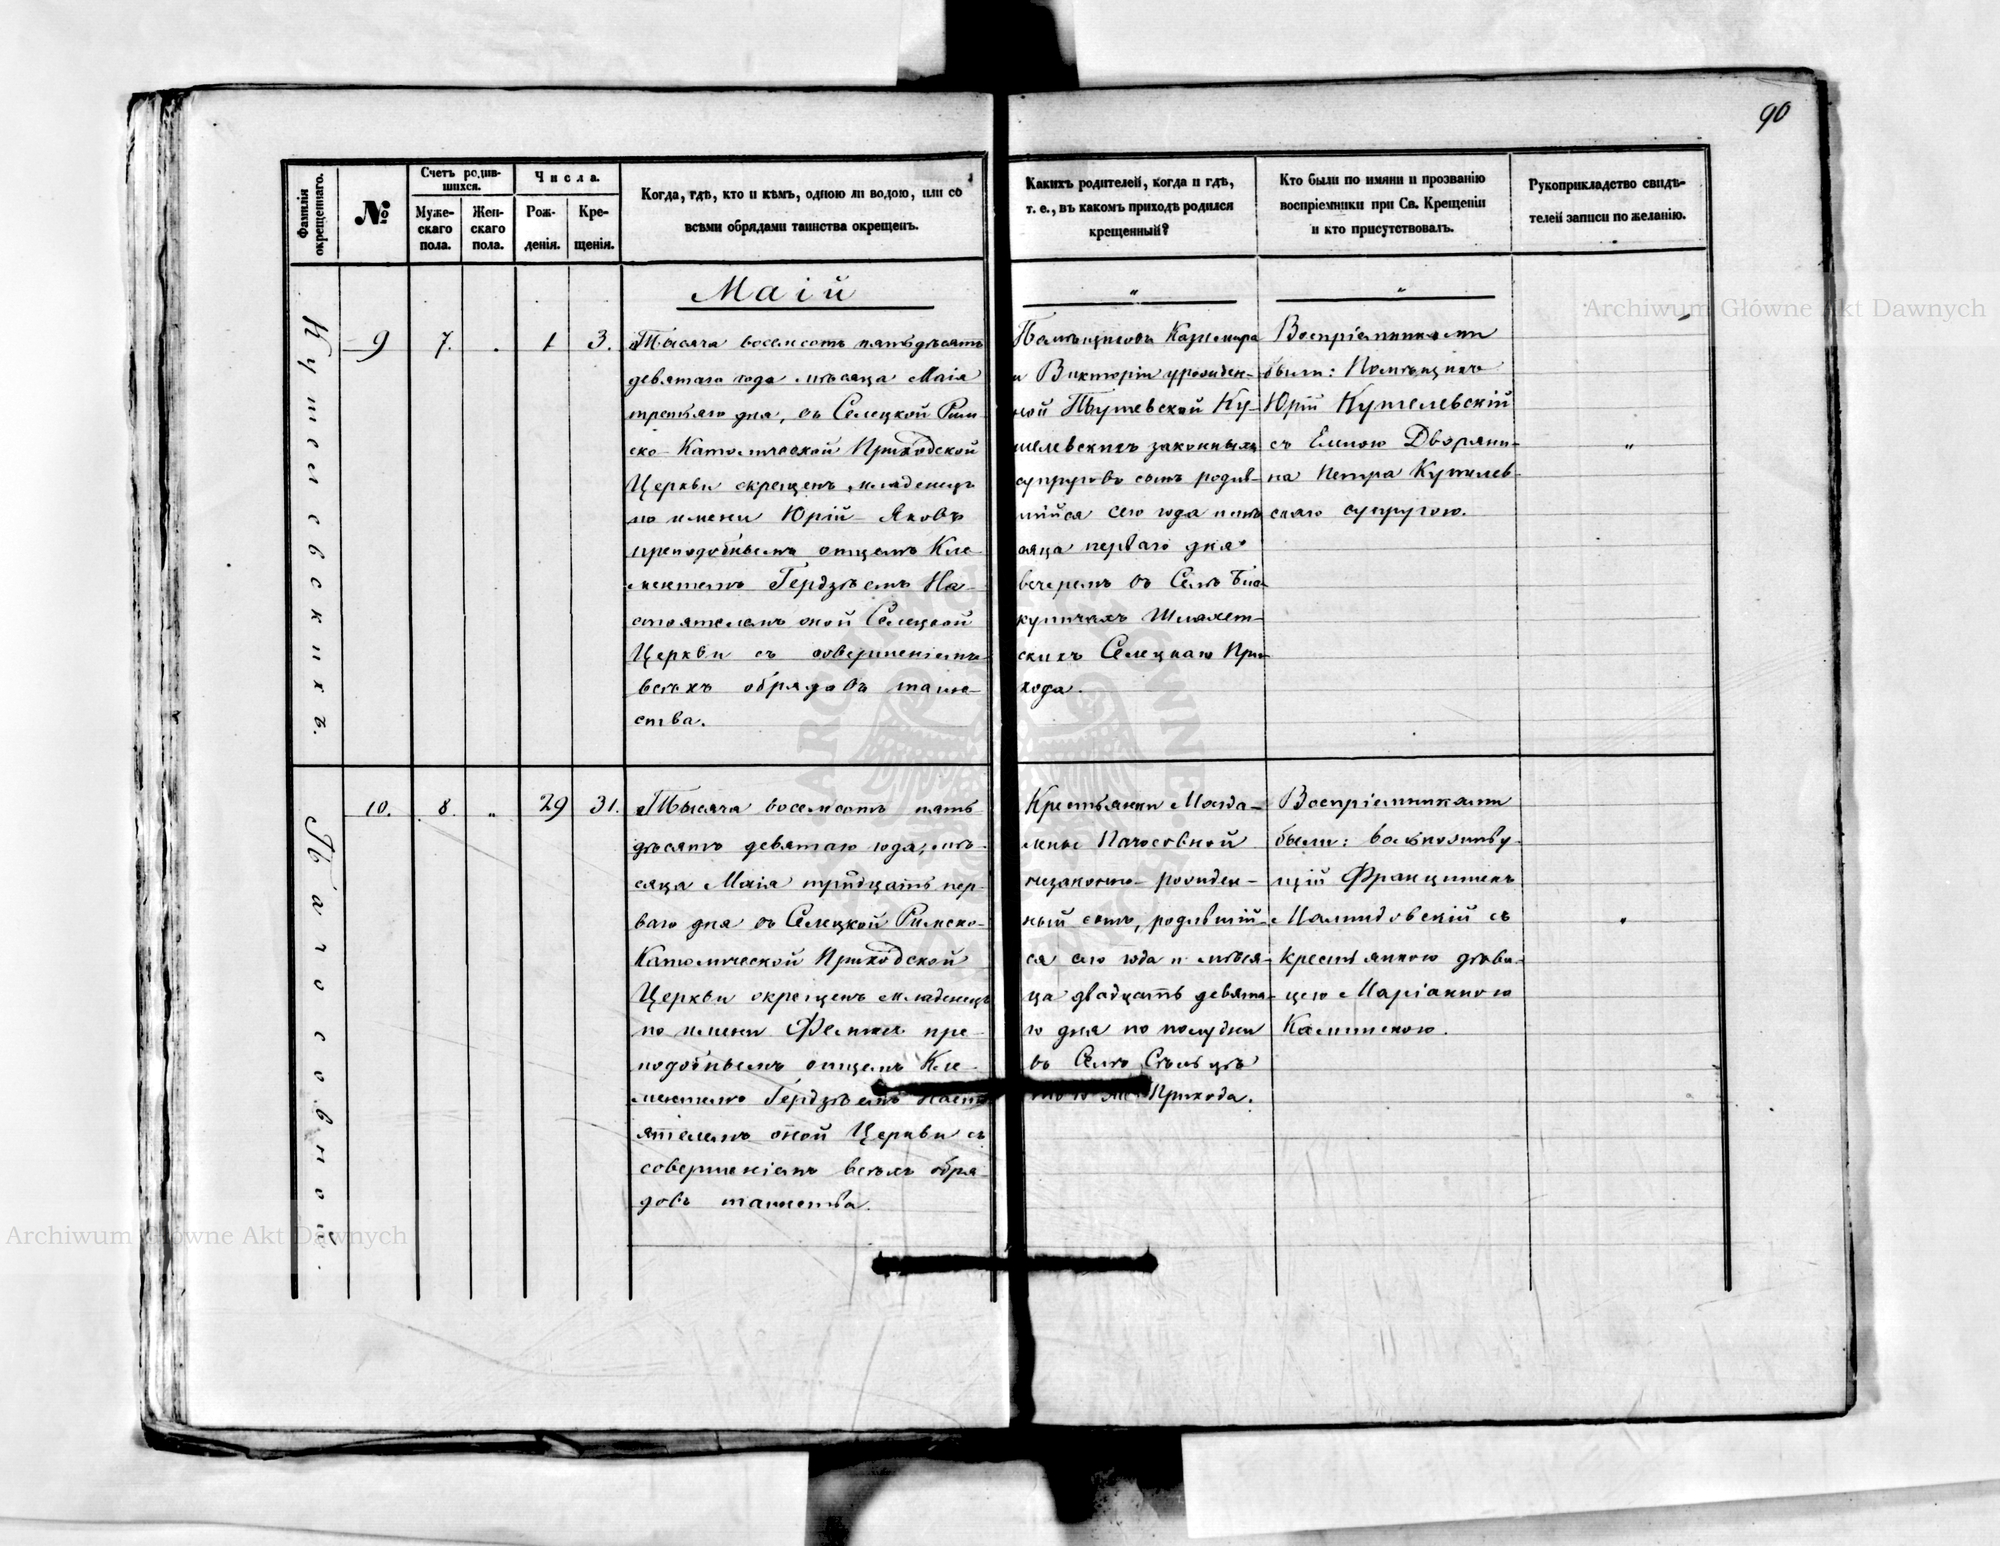 90
Фамилія окрещеннаго.
№
Счетъ родив-
шихся.
Муже-
скаго
пола.
Жен-
скаго
пола.
Числа.
Рож-
денія.
Кре-
щенія.
Когда, гдѣ, кто и кѣмъ, одною ли водою, или со
всѣми обрядами таинства окрещенъ.
Какихъ родителей, когда и гдѣ,
т. е., въ какомъ приходѣ родился
крещенный?
Кто были по имяни и прозванію
воспріемники при Св. Крещеніи
и кто присутствовалъ.
Рукоприкладство свидѣ-
телей записи по желанію.
Маій
"
"
Кушелевскихъ.
9
7.
.
1
3.
Тысяча восемсотъ пятьдѣсятъ
девятаго года мѣсяца Маія
третьяго дня, въ Селецкой Рим-
ско-Католической Приходской
Церкви окрещенъ младенецъ
по имени Юрій-Яковъ
преподобнымъ отцемъ Кле-
ментомъ Гердзѣемъ На-
стоятелемъ оной Селецкой
Церкви съ совершеніемъ
всѣхъ обрядовъ таин-
ства.
Помѣщиковъ Казимира
и Викторіи урожден-
ной Кушелевскихъ законныхъ
супруговъ сынъ родив-
шійся сего года и мѣ-
сяца перваго дня
вечеремъ въ Селѣ
Шляхет-
скихъ Селецкаго При-
хода.
Воспріемниками
были: Помѣщикъ
Юрій Кушелевскій
съ Еленою Дворяни-
на Петра Кушелев-
скаго супругою.
"
Пачосовной.
10.
8.
"
29
31.
Тысяча восемсотъ пять
дѣсятъ девятаго года, мѣ-
сяца Маія тридцать пер-
ваго дня въ Селецкой Римско-
Католической Приходской
Церкви окрещенъ младенецъ
по имени Феликсъ пре-
подобнымъ отцемъ Кле-
ментомъ Гердзѣемъ Насто-
ятелемъ оной Церкви съ
совершеніемъ всѣхъ обря-
довъ таинства.
Крестьянки Магда-
лены Пачосовной
незаконно-рожден-
ный сынъ, родившій-
ся сего года и мѣся-
ца двадцать девята-
го дня по полудни
въ Селѣ Сѣльцѣ
Прихода.
Воспріемниками
были: вольноживу-
щій Францишекъ
съ
крестьянкою дѣви-
цею Маріанною
Калинскою.
"
Archiwum Główne Akt Dawnych
Archiwum Główne Akt Dawnych